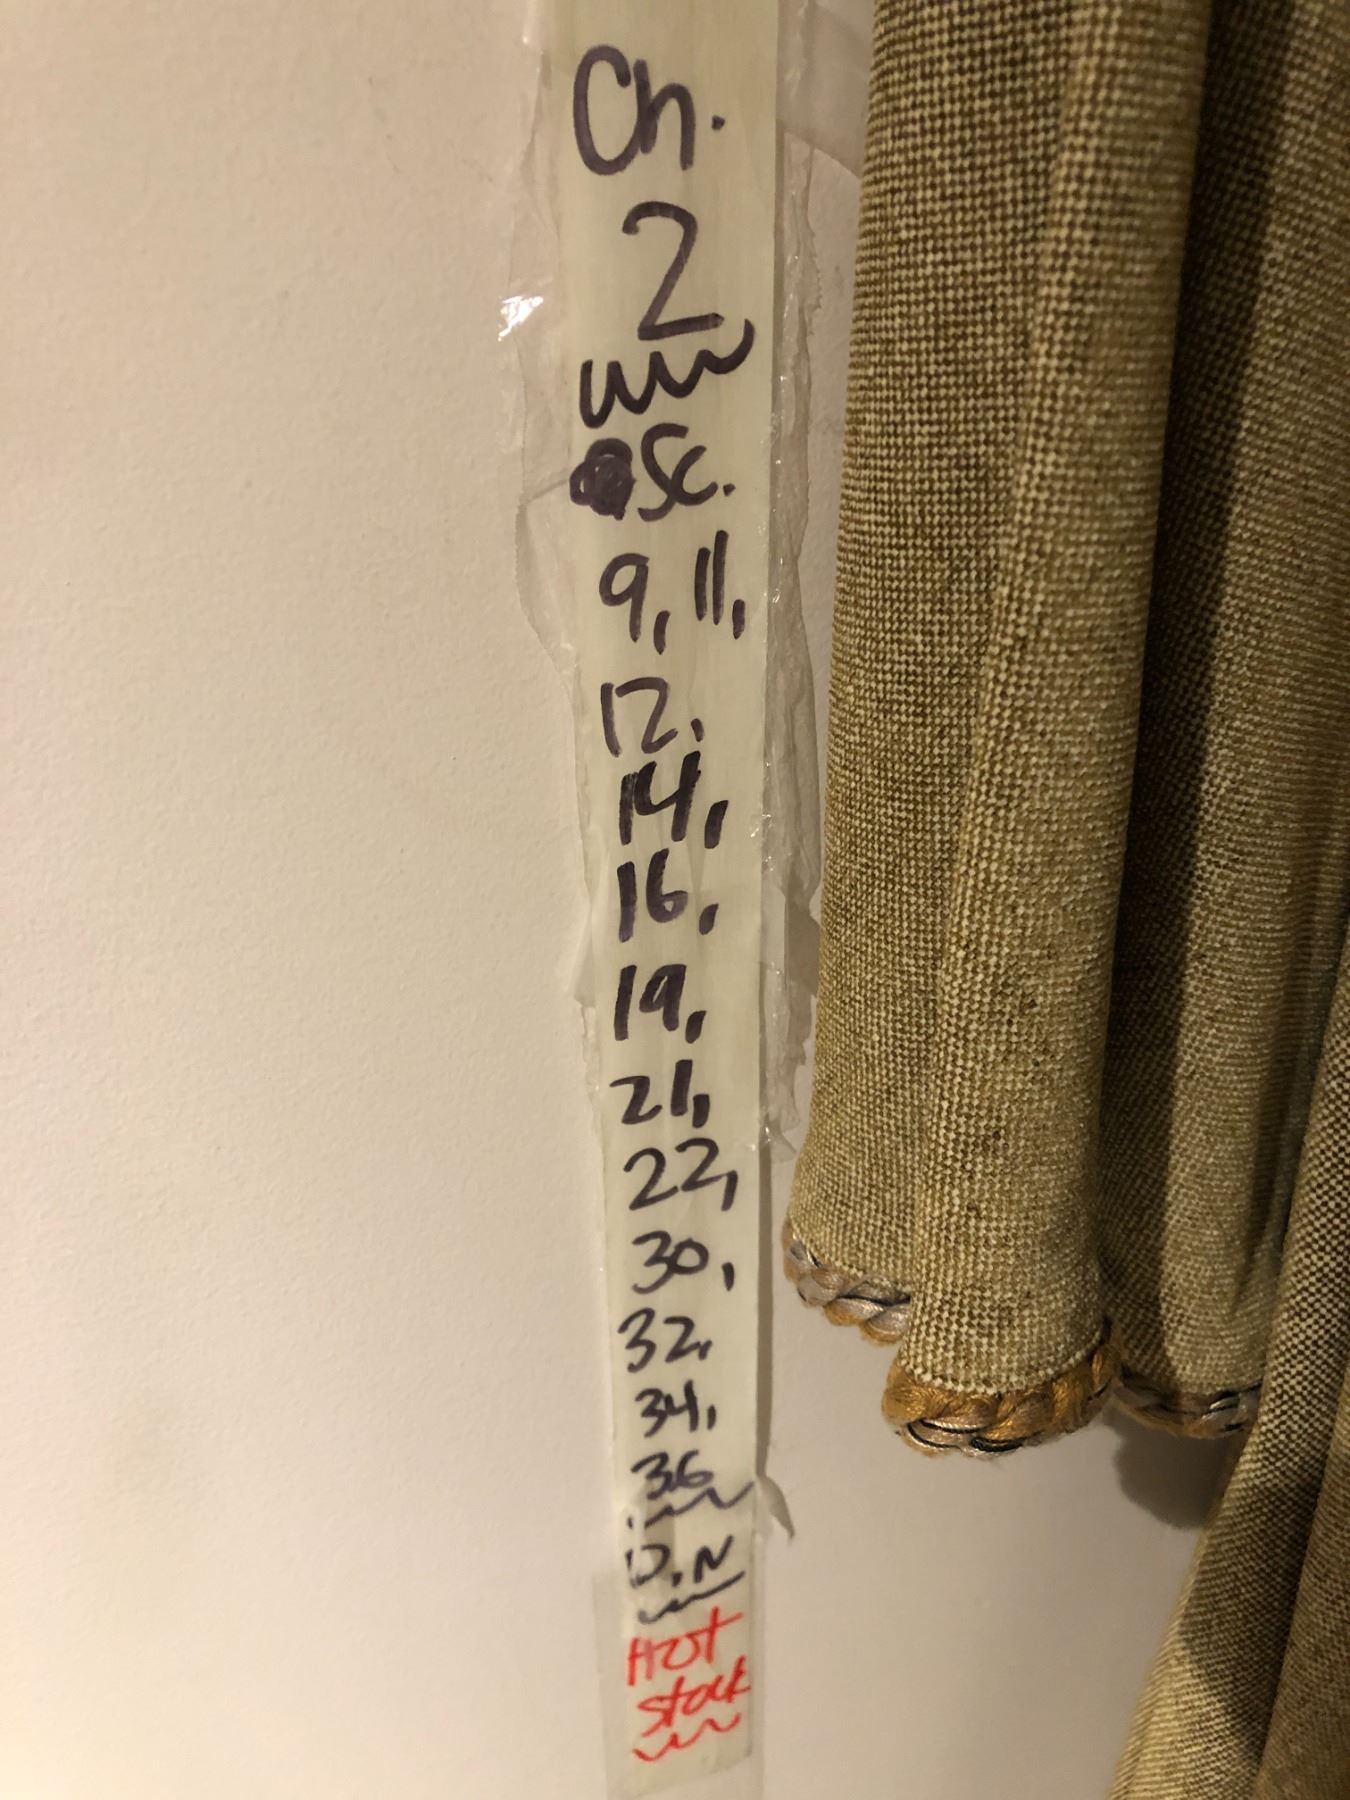 Ch.
2
Sc.
9, 11,
12,
14,
16,
19,
21,
22,
30,
32,
34,
36
D, N
Hot
stock